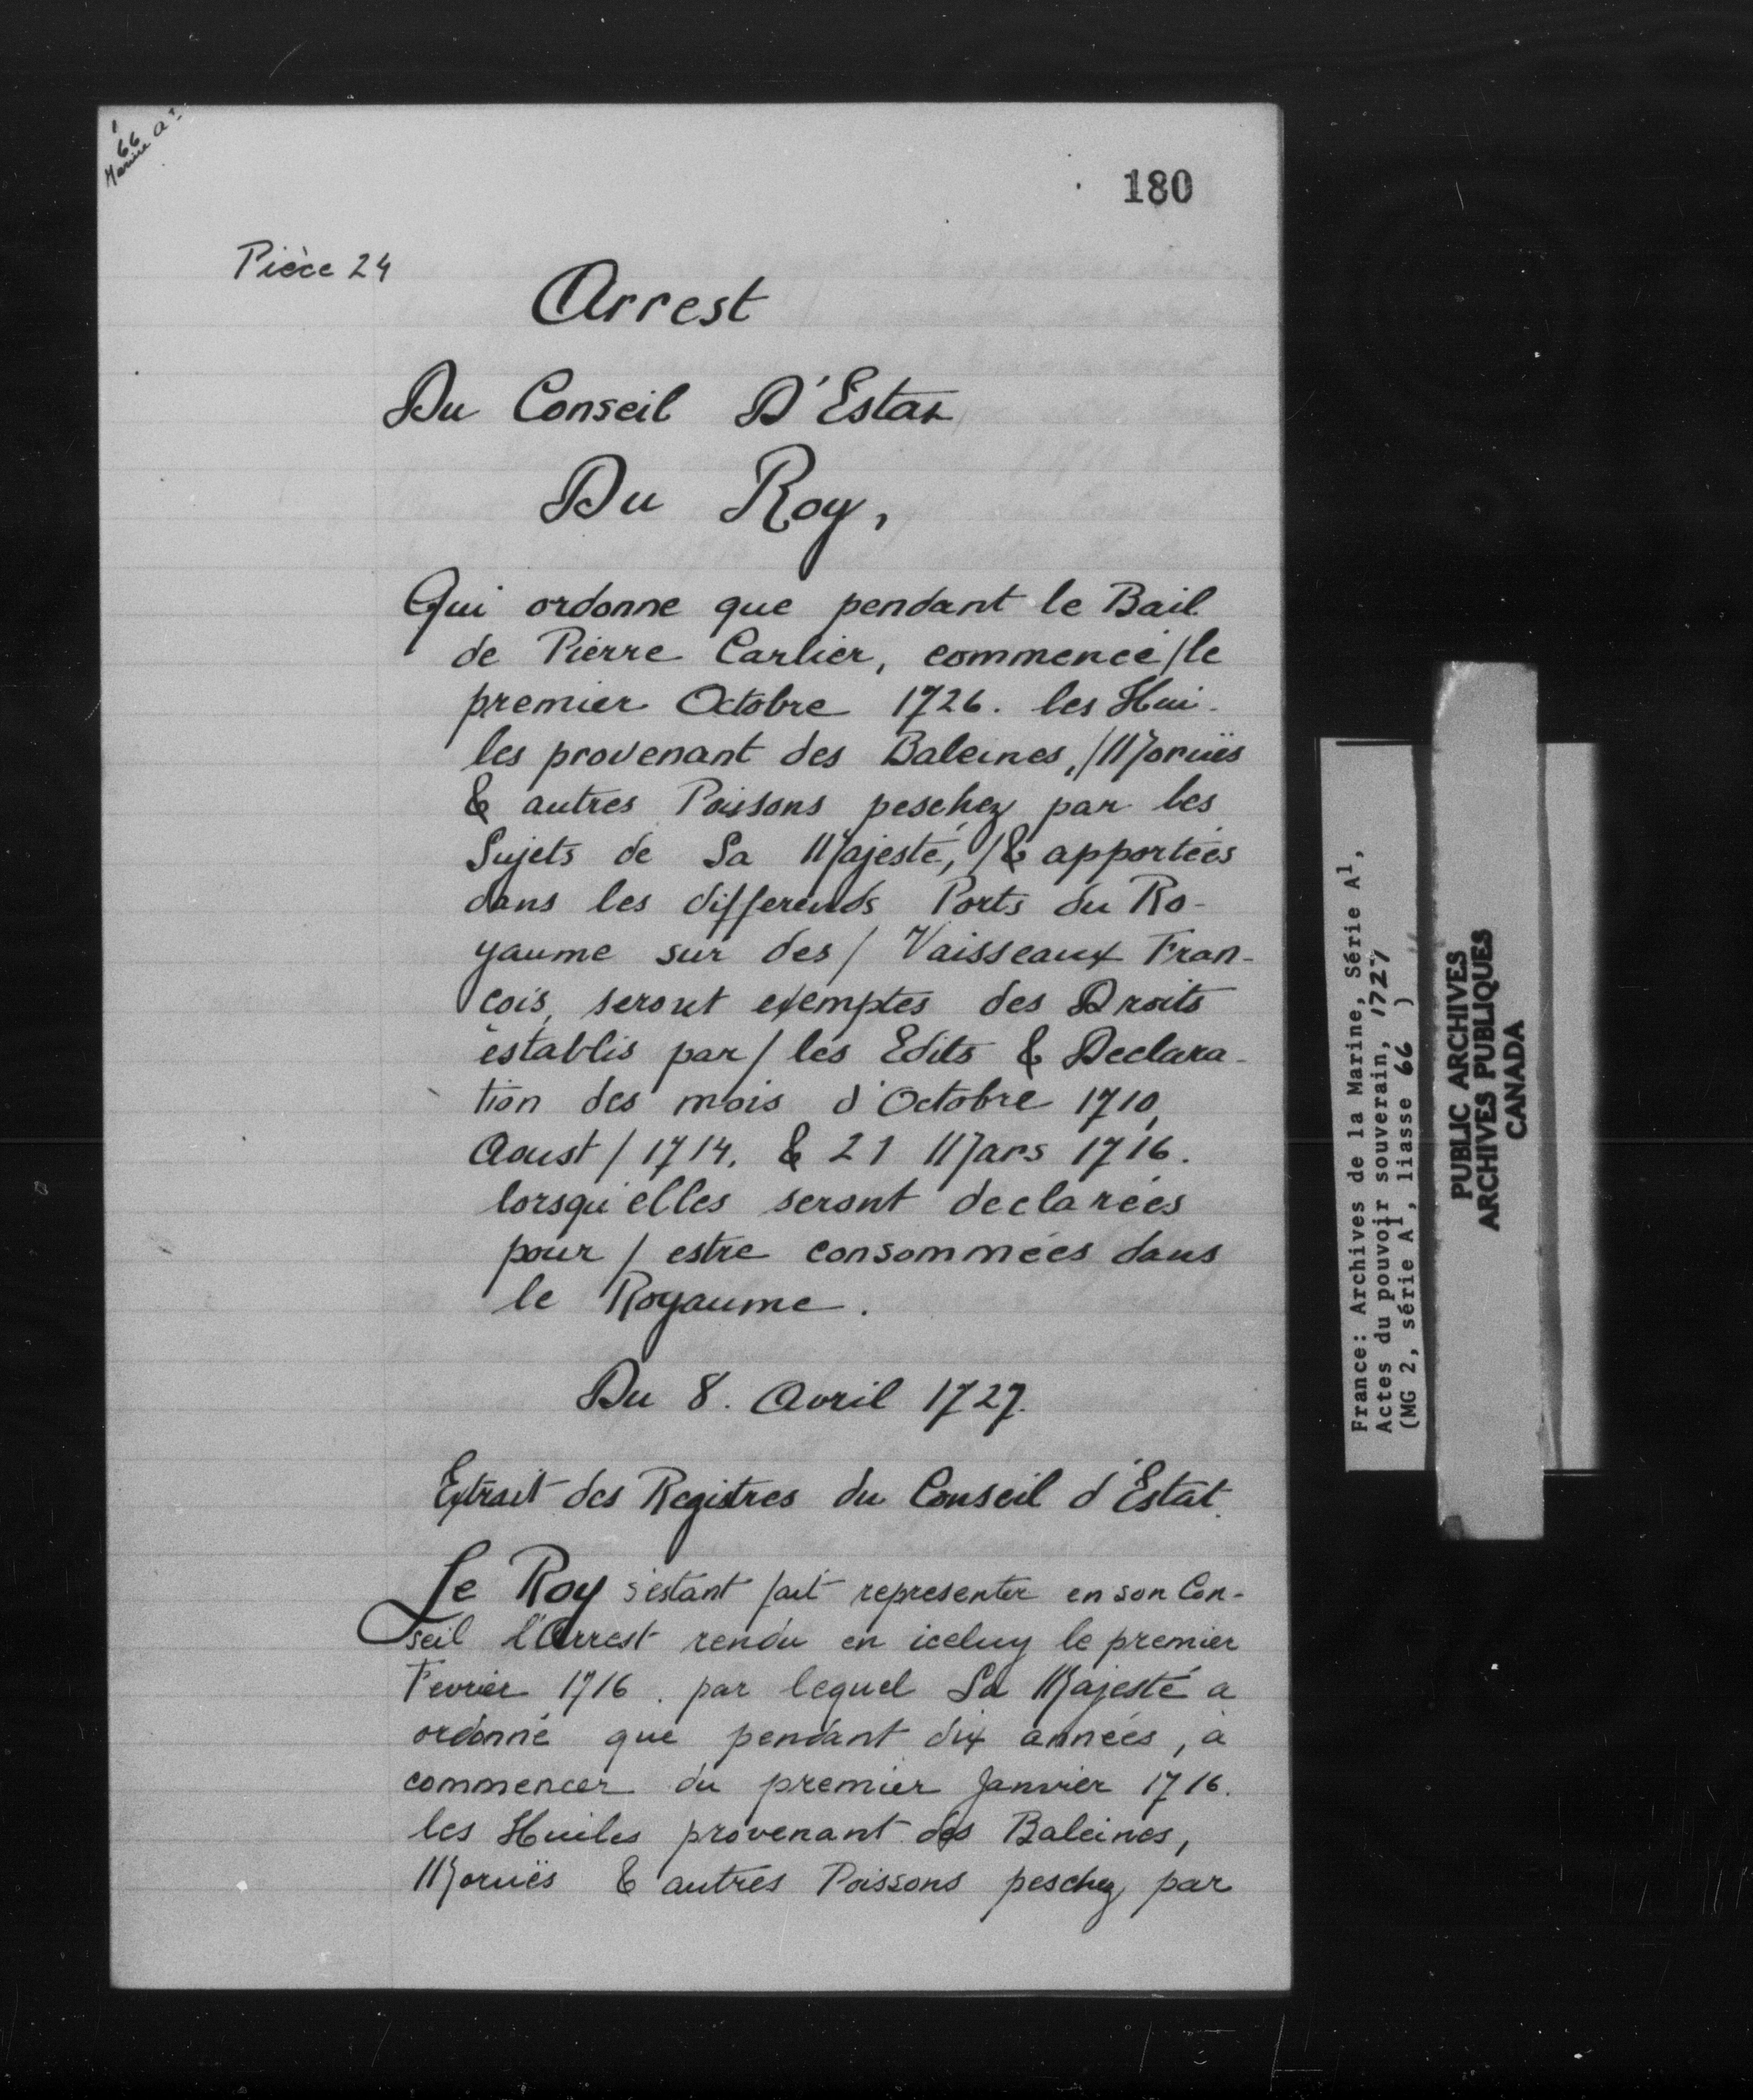 1
66
Marine A¹
180
Pièce 24
Arrest
Du Conseil D'Estat
Du Roy,
Qui ordonne que pendant le Bail
de Pierre Carlier, commencé/le
premier Octobre 1726. les Hui-
les provenant des Baleines,/Moruës
& autres Poissons peschez par les
Sujets de Sa Majesté,/& apportées
dans les differends Ports du Ro-
yaume sur des/Vaisseaux Fran-
cois, seront exemptes des Droits
establis par/les Edits & Declara-
tion des mois d'Octobre 1710,
Aoust/1714. & 21 Mars 1716.
lorsqu'elles seront declarées
pour/estre consommées dans
le Royaume.
Du 8. Avril 1727.
Extrait des Registres du Conseil d'Estat.
Le Roy s'estant fait representer en son Con-
seil l'Arrest rendu en iceluy le premier
Fevrier 1716. par lequel Sa Majesté a
ordonné que pendant dix années, à
commencer du premier Janvier 1716.
les Huiles provenant des Baleines,
Moruës & autres Poissons peschez par
France: Archives de la Marine, Série A¹,
Actes du pouvoir souverain, 1727
(MG 2, série A¹, liasse 66 )
PUBLIC ARCHIVES
ARCHIVES PUBLIQUES
CANADA